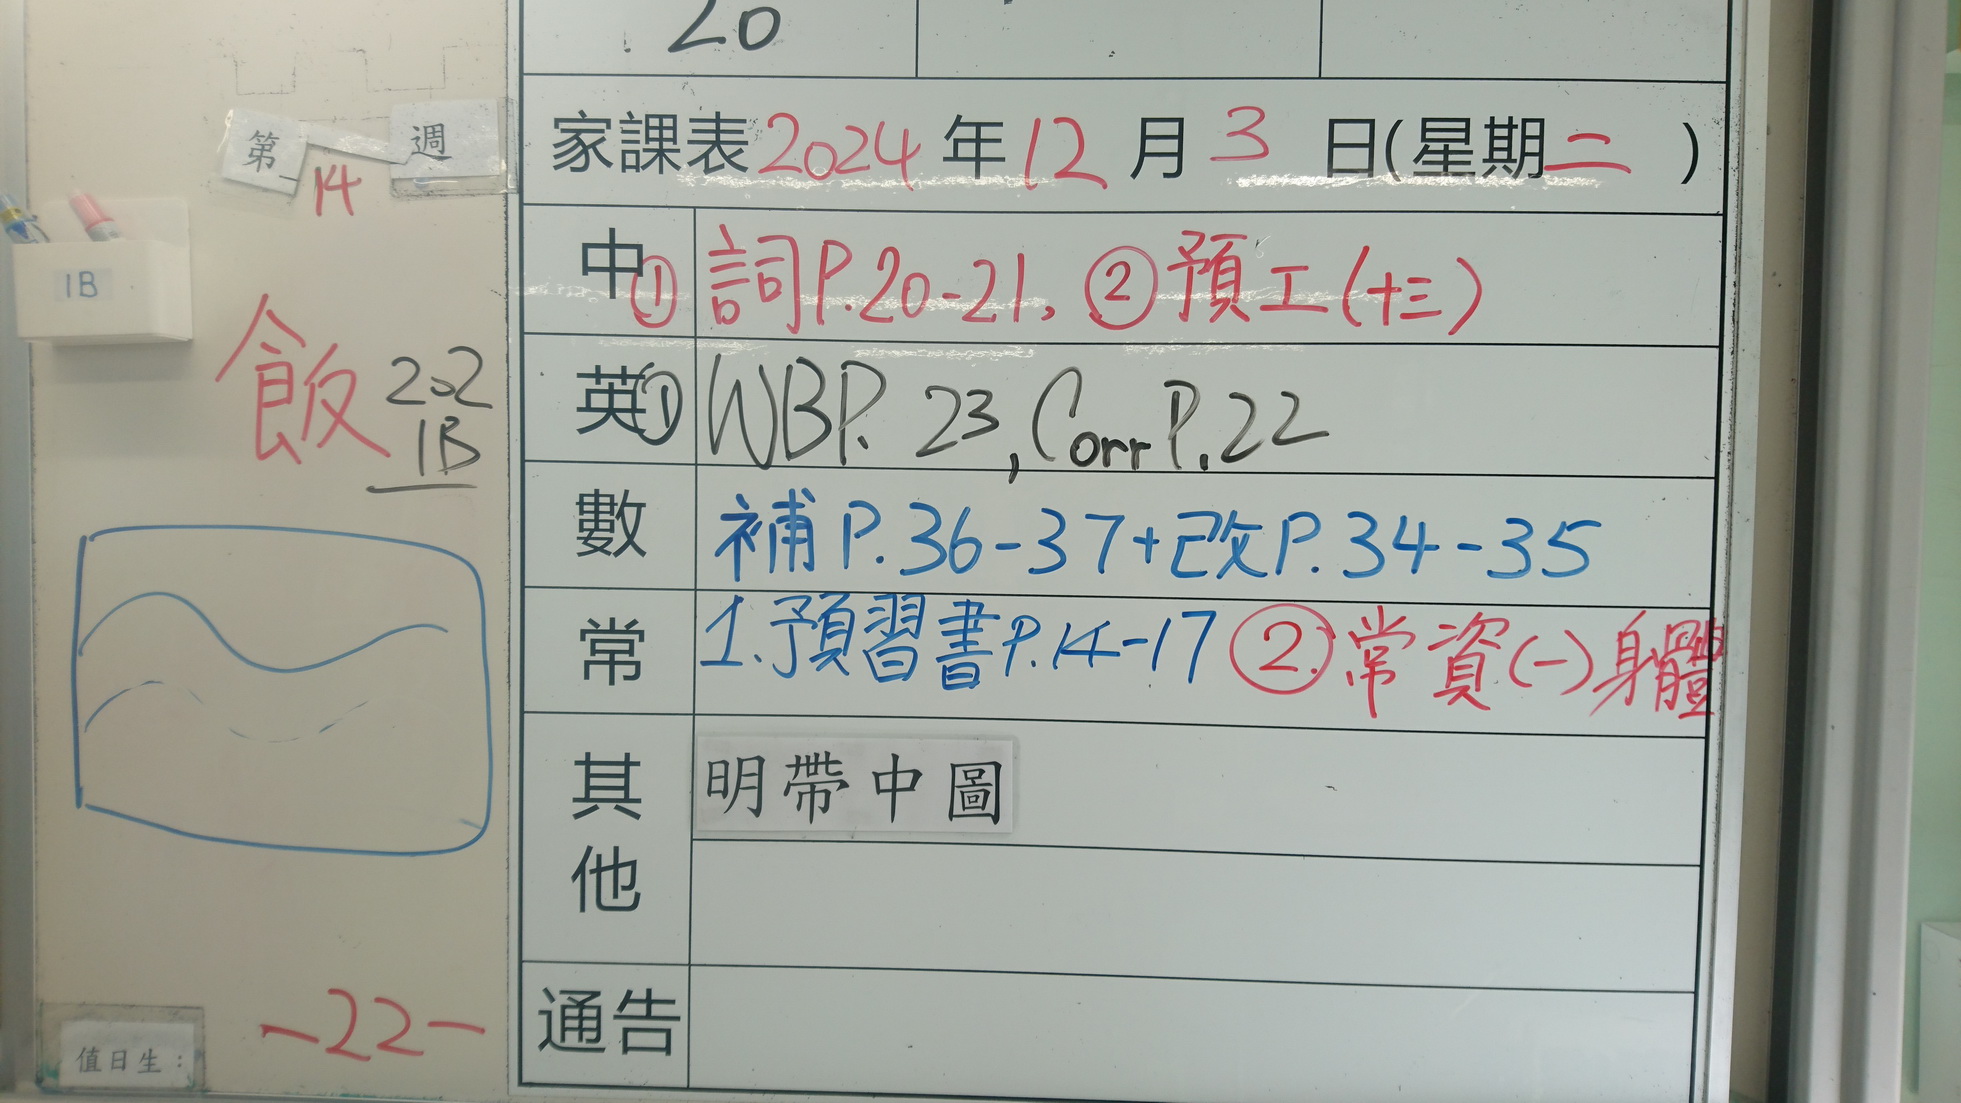 20
第 14 週
1B
飯 202
1B
家課表 2024 年 12 月 3 日(星期二)
中 ① 詞P.20-21, ② 預工(十三)
英 ① WBP. 23, Corr P.22
數 補P.36-37+改P.34-35
常 1.預習書P.14-17 ②.常資(一)身體
其他 明帶中圖
通告
-22-
值日生: